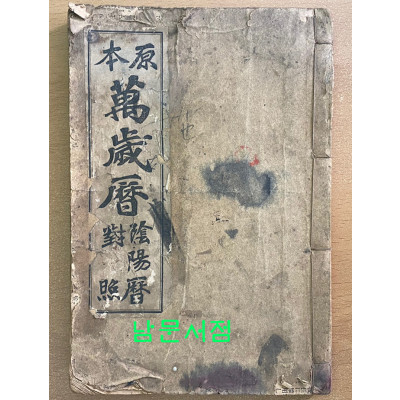 原本
萬歲曆
陰陽曆
對照
남문서점